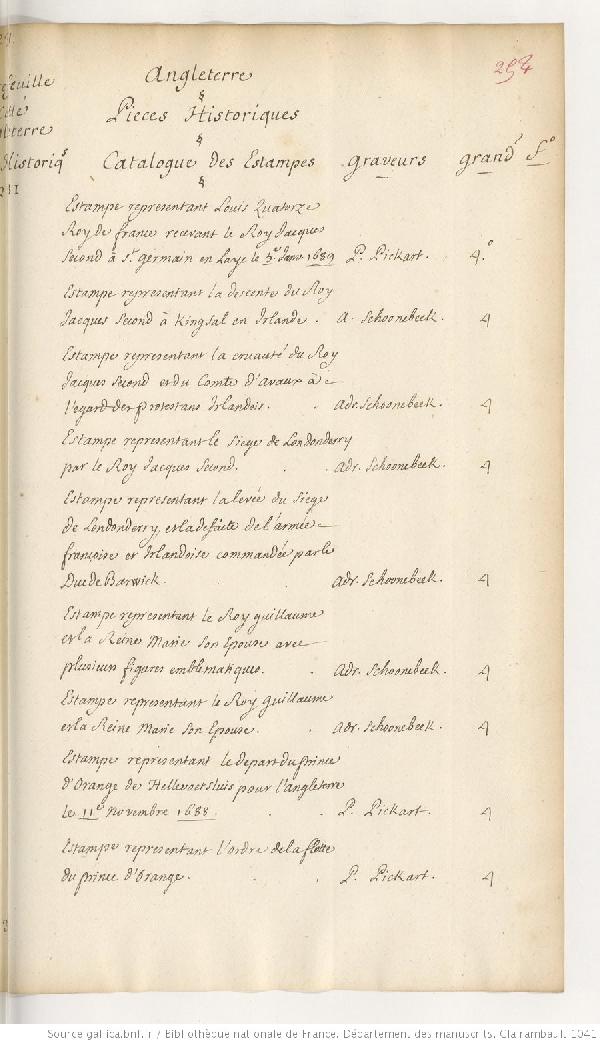 Angleterre
254
§
Pieces Historiques
§
Catalogue des Estampes graveurs grand^r f.^o
§
Estampe representant Louis Quatorze
Roy de france recevant le Roy Jacques
Second à S^t germain en Laye le 5^e Janv. 1689 P. Pickart. 4.^o
Estampe representant la descente du Roy
Jacques Second à Kingsal en Irlande. A. Schoonebeek. 4
Estampe representant la cruauté du Roy
Jacques Second et du Comte d'avaux à
l'egard des protestans Irlandois. Adr. Schoonebeek. 4
Estampe representant le Siege de Londonderry
par le Roy Jacques Second. Adr. Schoonebeek. 4
Estampe representant la levée du Siege
de Londonderry, et la defaite de l'armée
françoise et Irlandoise commandée par le
Duc de Barwick. Adr. Schoonebeek. 4
Estampe representant le Roy guillaume
et la Reine Marie Son Epouse avec
plusieurs figures emblematiques. Adr. Schoonebeek. 4
Estampe representant le Roy guillaume
et la Reine Marie Son Epouse. Adr. Schoonebeek. 4
Estampe representant le depart du prince
d'Orange de Hellevoetsluis pour l'angleterre
le 11^e Novembre 1688. P. Pickart. 4
Estampe representant l'ordre de la flotte
du prince d'Orange. P. Pickart. 4
Source gallica.bnf.fr / Bibliothèque nationale de France. Département des manuscrits. Clairambault 1041